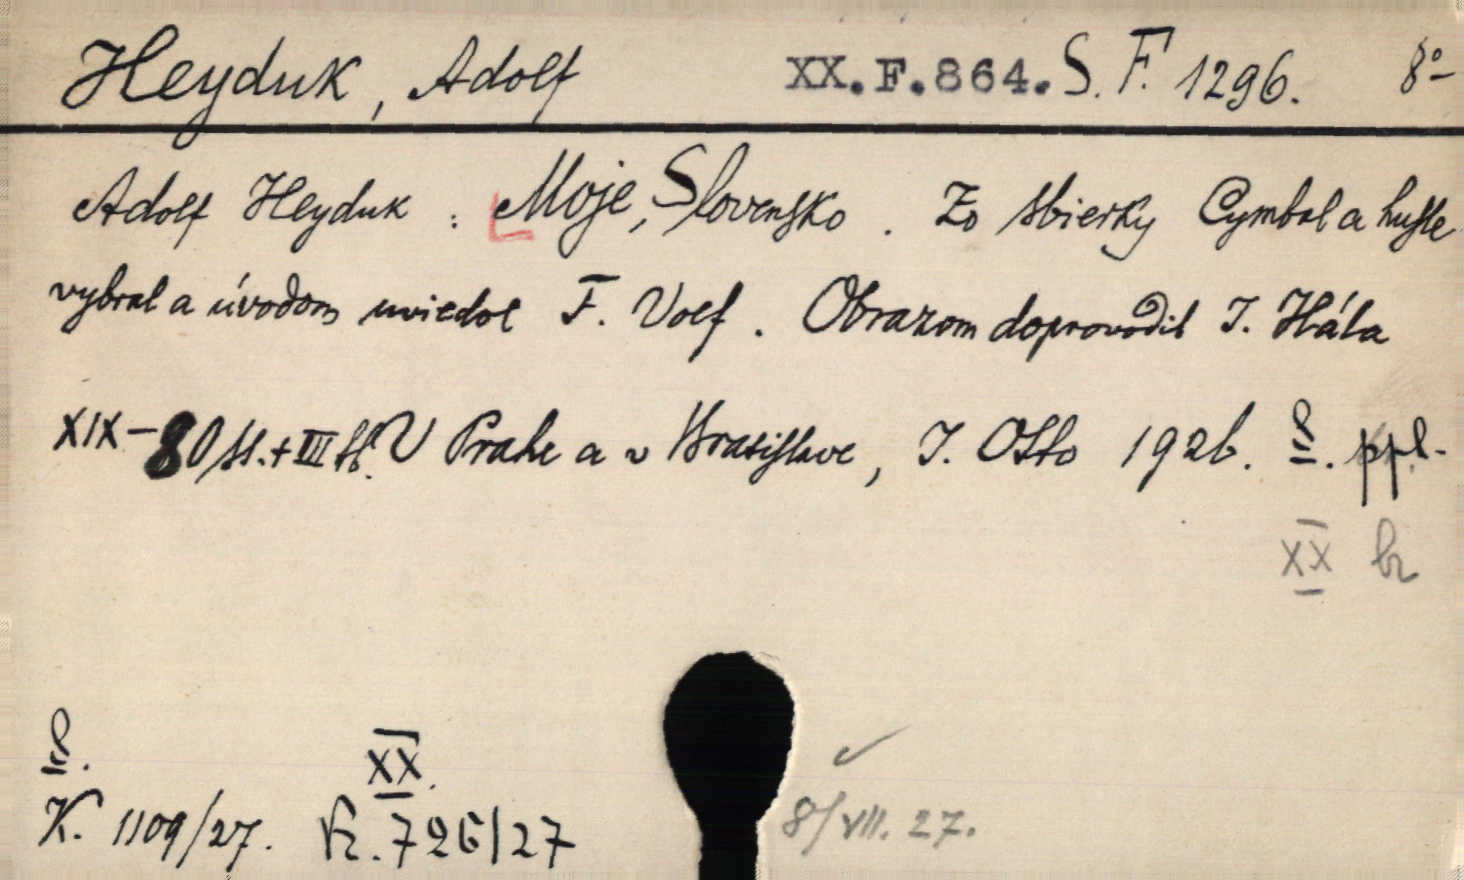 Heyduk, Adolf XX.F.864. S. F. 1296. 8°
Adolf Heyduk : Moje Slovensko. Zo sbierky Cymbal a husle
vybral a úvodom uviedol F. Votf. Obrazom doprovodil J. Hála
XIX-80 st.+III st. V Prahe a v Bratislave, J. Otto 1926. ppl.
XX br
XX.
K. 1109/27. Kr. 726/27 8/VII. 27.